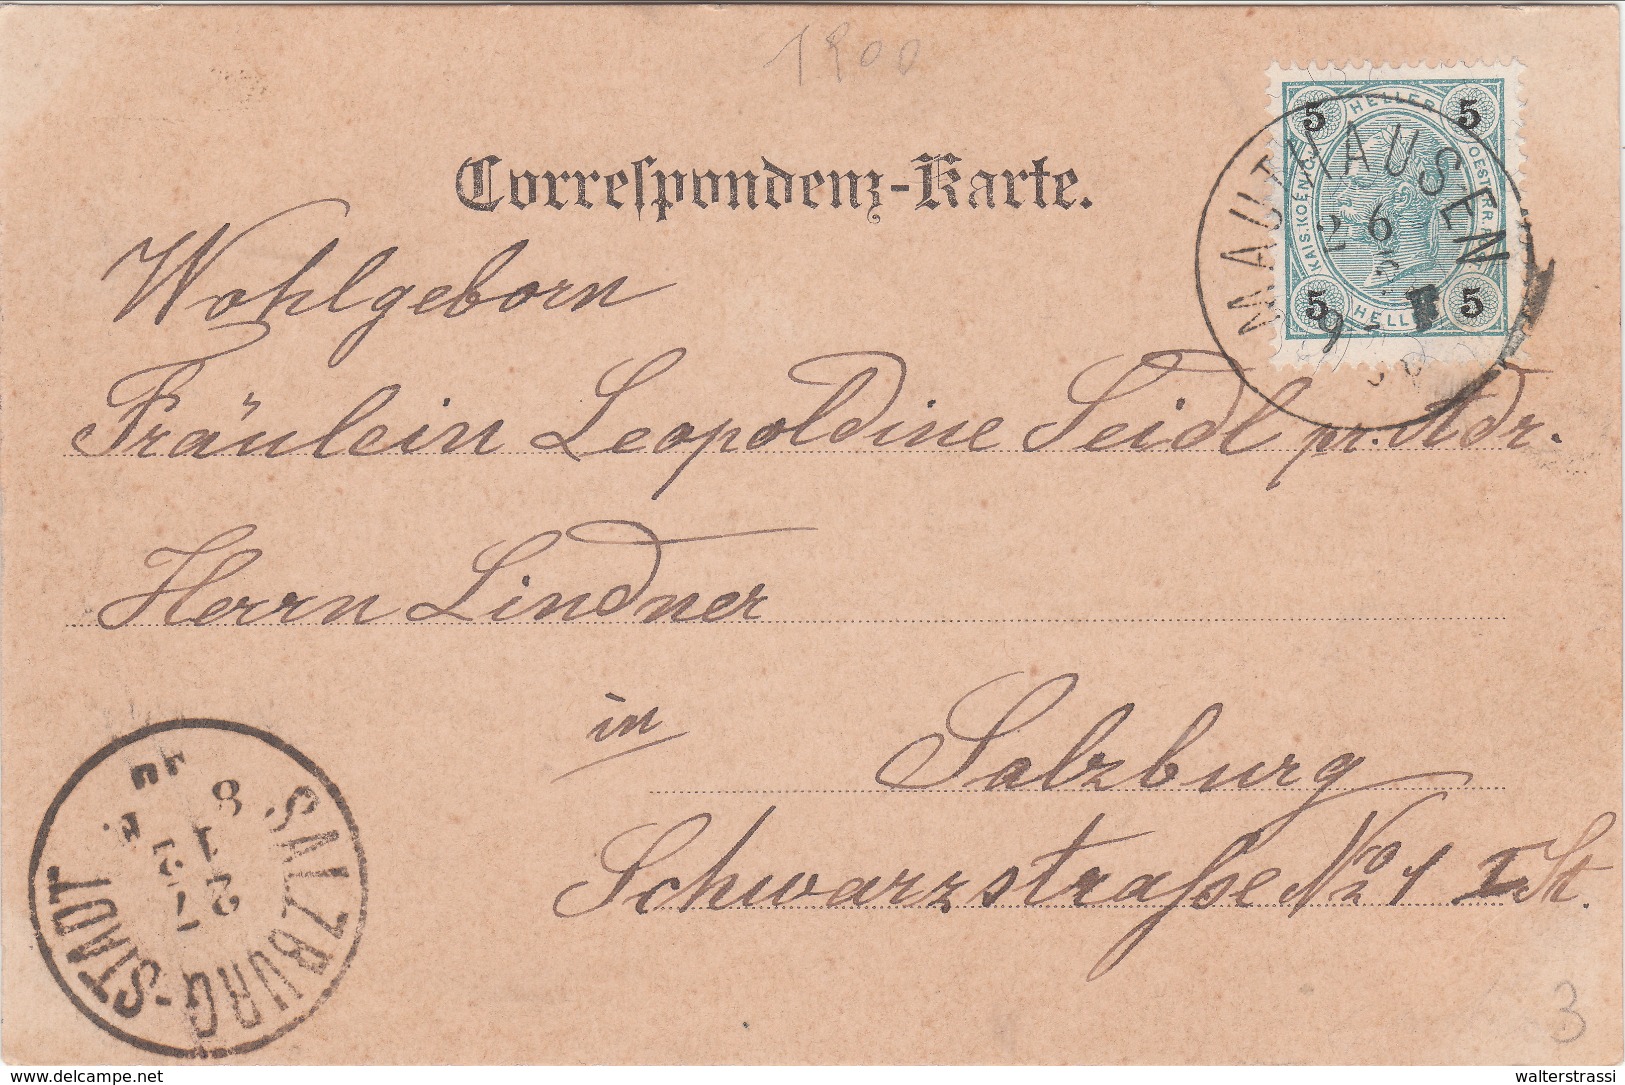 1900
Correspondenz-Karte.
5 HELLER 5
KAIS. KOENIG. OESTERR.
5 HELLER 5
MAUTHAUSEN
26
9-F
Wohlgeborn
Fräulein Leopoldine Seidl pr. Adr.
Herrn Lindner
in
Salzburg
Schwarzstraße No 1 I St.
SALZBURG-STADT
3
www.delcampe.net
walterstrassi